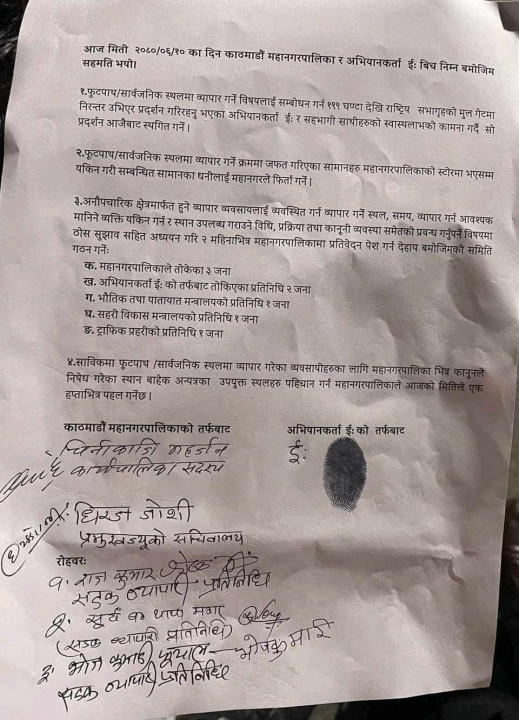 आज मिती २०८०/०६/१० का दिन काठमाडौं महानगरपालिका र अभियानकर्ता ईः बिच निम्न बमोजिम
सहमति भयो।
१.फूटपाथ/सार्वजनिक स्थलमा व्यापार गर्ने विषयलाई सम्बोधन गर्न १९९ घण्टा देखि राष्ट्रिय सभागृहको मुल गेटमा
निरन्तर उभिएर प्रदर्शन गरिरहनु भएका अभियानकर्ता ईः र सहभागी साथीहरुको स्वास्थलाभको कामना गर्दै सो
प्रदर्शन आजैबाट स्थगित गर्ने।
२.फूटपाथ/सार्वजनिक स्थलमा व्यापार गर्ने क्रममा जफत गरिएका सामानहरु महानगरपालिकाको स्टोरमा भएसम्म
यकिन गरी सम्बन्धित सामानका धनीलाई महानगरले फिर्ता गर्ने।
३.अनौपचारिक क्षेत्रमार्फत हुने व्यापार व्यवसायलाई व्यवस्थित गर्न व्यापार गर्ने स्थल, समय, व्यापार गर्न आवश्यक
मानिने व्यक्ति यकिन गर्न र स्थान उपलब्ध गराउने विधि, प्रक्रिया तथा कानूनी व्यवस्था समेतको प्रवन्ध गर्नुपर्ने विषयमा
ठोस सुझाव सहित अध्ययन गरि २ महिनाभित्र महानगरपालिकामा प्रतिवेदन पेश गर्न देहाय बमोजिमको समिति
गठन गर्नेः
क. महानगरपालिकाले तोकेका ३ जना
ख. अभियानकर्ता ईः को तर्फबाट तोकिएका प्रतिनिधि २ जना
ग. भौतिक तथा यातायात मन्त्रालयको प्रतिनिधि १ जना
घ. सहरी विकास मन्त्रालयको प्रतिनिधि १ जना
ङ. ट्राफिक प्रहरीको प्रतिनिधि १ जना
४.साविकमा फूटपाथ /सार्वजनिक स्थलमा व्यापार गरेका व्यवसायीहरुका लागि महानगरपालिका भित्र कानूनले
निषेध गरेका स्थान बाहेक अन्यत्रका उपयुक्त स्थलहरु पहिचान गर्न महानगरपालिकाले आजको मितिले एक
हप्ताभित्र पहल गर्नेछ।
काठमाडौं महानगरपालिकाको तर्फबाट
चिनीकाजि महर्जन
कार्यपालिका सदस्य
अभियानकर्ता ईः को तर्फबाट
ईः
धिरज जोशी
प्रमुखज्यूको सचिवालय
रोहवरः
१. राज कुमार
सडक व्यापारी प्रतिनिधि
२. सूर्य थापा मगर
(सडक व्यापारी प्रतिनिधि)
३. भोज कुमारी फुयाल
सडक व्यापारी प्रतिनिधि
भोजकुमारी